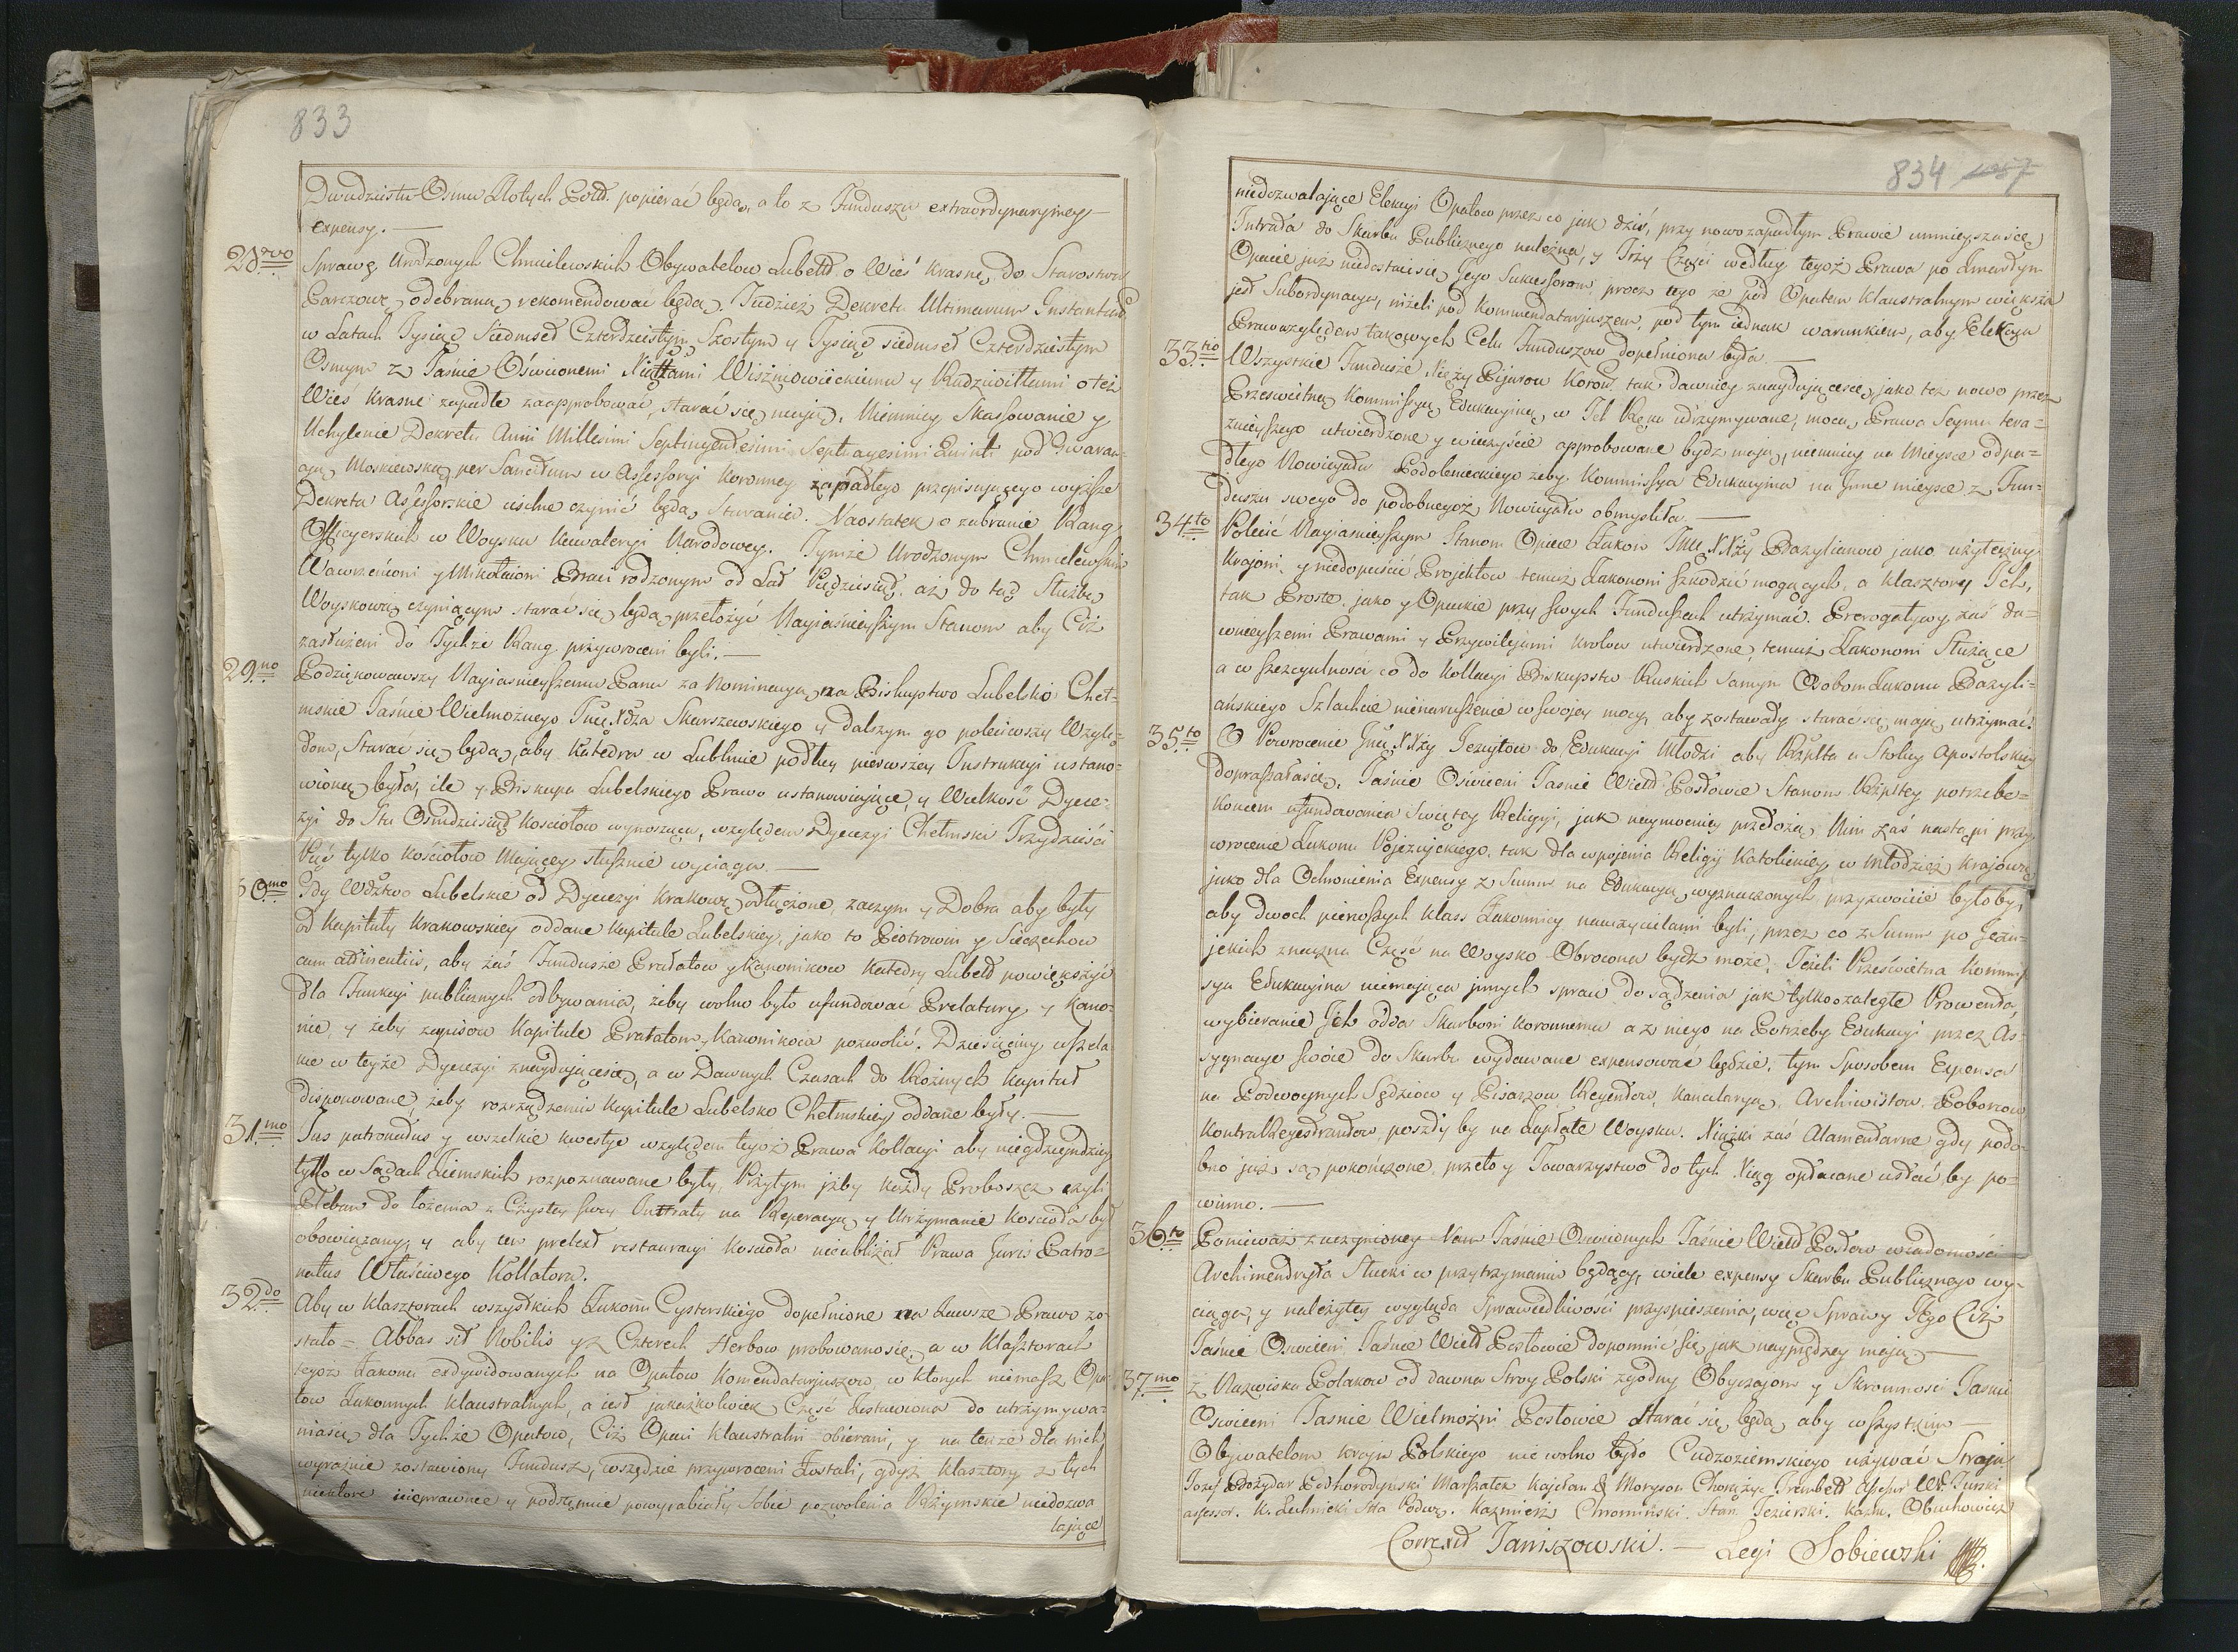 833
Dwudziestu Osmu Złotych Poll. popierać będą, a to z Funduszu extraordynaryiney
expensy. —
28vo Sprawę Urodzonych Chmielewskich Obywatelow Lubell. o Wieś Krasne, do Starostwa
Parczow: odebraną, rekomendować będą. Tudzież Dekreta Ultimarum Instantiar
w Latach Tysiąc Siedmset Czterdziestym Szostym y Tysiąc siedmset Czterdziestym
Osmym z Jaśnie Oświeconemi Xiążętami Wiszniowieckiemi y Radziwiłłami o też
Wieś Krasne zapadłe zaapprobować, starać się maią. Niemniey Skassowanie y
Uchylenie Dekretu Anni Millesimi Septingentesimi Septuagesimi Quinti pod Gwaran-
cyą Moskiewską per Sancitum w Assessoryi Koronney zapadłego przepisuiącego wyższe
Dekreta Assessorskie usilne czynić będą Starania. Naostatek o zabranie Rang
Officyerskich w Woysku Kawaleryi Narodowey. Tymże Urodzonym Chmielewskim
Wawrzeńcowi y Mikołaiowi Braci rodzonym od Lat Pięćdziesiąt, aż do tąd Służbę
Woyskową czyniącym starać się będą przełożyć Nayiaśnieyszym Stanom aby Ciż
zasłużeni do Tychże Rang przywroceni byli. —
29no Podziękowawszy Nayiasnieyszemu Panu za Nominacyą na Biskupstwo Lubelsko Cheł-
mskie Jaśnie Wielmożnego Jmć Xdza Skarszewskiego y dalszym go poleciwszy Wzglę-
dom, Starać się będą, aby Katedra w Lublinie podług pierwszey Instrukcyi ustano-
wioną była, ile y Biskupa Lubelskiego Prawo ustanowiaiące, y Wielkość Dyece-
zyi do Stu Osmdziesiąt Kosciołow wynosząca, względem Dyecezyi Chełmski Trzydzieści
Pięć tylko Kosciołow Maiącey słusznie wyciąga. —
30mo Gdy Wdztwo Lubelskie od Dyecezyi Krakows: odłączone, zaczym y Dobra aby były
od Kapituły Krakowskiey oddane Kapitule Lubelskiey, jako to Piotrowin y Sieciechow
cum attinentiis, aby zaś Fundusze Prałatow y Kanonikow Katedry Lubell powiększyć
dla Funkcyi publicznych odbywania, żeby wolno było ufundować Prelatury y Kano-
nie, y żeby zapisow Kapitule Prałatom y Kanonikom pozwolić. Dziesięciny wszela-
kie w teyże Dyecezyi znayduiące się, a w Dawnych Czasach do Rożnych Kapituł
disponowane, żeby rozrządzeniu Kapitule Lubelsko Chełmskiey oddane były. —
31mo Jus patronatus y wszelkie kwestye względem tegoż Prawa Kollacyi aby niegdzieyndziey
tylko w Sądach Ziemskich rozpoznawane były, Przytym iżby każdy Proboszcz czyli
Pleban do łożenia z Czystey swey Intraty na Reperacyą y Utrzymanie Kościoła był
obowiązany, y aby ten pretext restauracyi Kościoła nieubliżał Prawa Juris Patro-
natus Właściwego Kollatora.
32do Aby w Klasztorach wszystkich Zakonu Cysterskiego dopełnione na Zawsze Prawo zo-
stało = Abbas sit Nobilis y z Czterech Herbow probowano się; a w Klasztorach
tegoż Zakonu exdywidowanych na Opatow Komendataryuszow, w ktorych niemasz Opa-
tow Zakonnych Klaustralnych, a iest jakażkolwiek Część Zostawiona do utrzymywa-
nia się dla Tychże Opatow, Ciż Opaci Klaustralni obierani, y na tenże dla nich
wyraźnie zostawiony Fundusz, wszędzie przywroceni Zostali, gdyż Klasztory z tych
niektore nieprawnie y podstępnie powyrabiały Sobie pozwolenia Rzymskie niedozwa
laiące
834 1057
niedozwalaiące Elekcyi Opatow przez co jak dziś, przy nowozapadłym Prawie umnieysza się
Intrata do Skarbu Publicznego należna, y Trzy Części według tegoż Prawa po Zmarłym
Opacie już niedostaie się Jego Sukcessorom, procz tego że pod Opatem Klaustralnym większa
jest Subordynacya, niżeli pod Kommendataryuszem, pod tym iednak warunkiem, aby Elekcya
Prawa względem takowych Celu Funduszow dopełniona była. —
33tio Wszystkie Fundusze Xięży Pijarow Koron: tak dawniey znayduiące się, jako też nowo przez
Prześwietną Kommissyą Edukacyiną, w Ich Ręku utrzymywane, mocą Prawa Seymu tera-
źnieyszego utwierdzone y wieczyście approbowane bydź maią, niemniey na Mieysce odpa-
dłego Nowicyatu Podolenieckiego żeby Kommissya Edukacyina na Inne mieysce z Fun-
duszu swego do podobnegoż Nowicyatu obmyśliła. —
34to Polecić Nayiaśnieyszym Stanom Opiece Zakon Jmć XXży Bazylianow jako użyteczny
Krajowi, y niedopuścić Projektow temuż Zakonowi szkodzić mogących, a Klasztory Ich,
tak Proste jako y Opackie przy swych Funduszach utrzymać. Prerogatywy zaś da-
wnieyszemi Prawami y Przywilejami Krolow utwierdzone, temuż Zakonowi Służące
a w szczegulności co do Kollacyi Biskupstw Ruskich Samym Osobom Zakonu Bazyli-
ańskiego Szlachcie nienaruszenie w swojey mocy, aby zostawały starać się maią utrzymać.
35to O Powrocenie Jmć XXży Jezuitow do Edukacyi Młodzi aby Rzplta u Stolicy Apostolskiey
dopraszała się, Jaśnie Oświeceni Jaśnie Wiell Posłowie Stanom Rzpltey potrzebę =
Koncem ufundowania Swiętey Religyi, jak naymocniey przełożą. Nim zaś nastąpi przy-
wrocenie Zakonu Pojezuickiego, tak dla wpojenia Religij Katolickiey w Młodzież Krajową
jako dla Ochronienia Expensy z Summ na Edukacyą wyznaczonych, przyzwoicie byłoby,
aby dwoch pierwszych Klass Zakonnicy nauczycielami byli, przez co z Summ po Jezu-
jckich znaczna Część na Woysko Obrocona bydź może, Jeżeli Prześwietna Kommis
sya Edukacyina niemająca jnnych spraw do sądzenia jak tylko o zaległe Prowenta,
wybieranie Ich odda Skarbowi Koronnemu a z niego na Potrzeby Edukacyi przez As-
sygnacye swoie do Skarbu wydawane expensować będzie, tym Sposobem Expensa
na Podwoynych Sędziow y Pisarzow Regentow, Kancelaryą, Archiwistow, Poborcow
KontraRegestrantow, poszły by na Zapłatę Woysku. Xiążki zaś Alamentarne gdy podo-
bno już są pokończone, przeto y Towarzystwo do tych Xiąg opłacane ustać by po-
winno. —
36to Ponieważ z uczynioney Nam Jaśnie Oświeconych Jaśnie Wiell Posłow wiadomości
Archimendryta Słucki w przytrzymaniu będący, wiele expensy Skarbu Publicznego wy-
ciąga, y należytey wygląda Sprawiedliwości przyspieszenia, więc Sprawy Jego Ciż
Jaśnie Oświeceni Jaśnie Wiell Posłowie dopomnić się jak nayprędzey maią —
37mo z Nazwiska Polakow od dawna Stroy Polski zgodny Obyczajom y Skromnosci Jaśnie
Oświeceni Jaśnie Wielmożni Posłowie starać się będą aby wszystkim —
Obywatelom kraju Polskiego nie wolno było Cudzoziemskiego używać Stroju
Jozef Bożydar Podhorodynski Marszałek Kajetan & Moryson Choraży Trembell Assesor W. Turski
assessor. K. Suchnicki Sta Podcz. Kazmierz Chromiński. Stan. Jezierski. Kazm. Obuchowicz
Correxit Janiszowski. — Legi Sobiewski